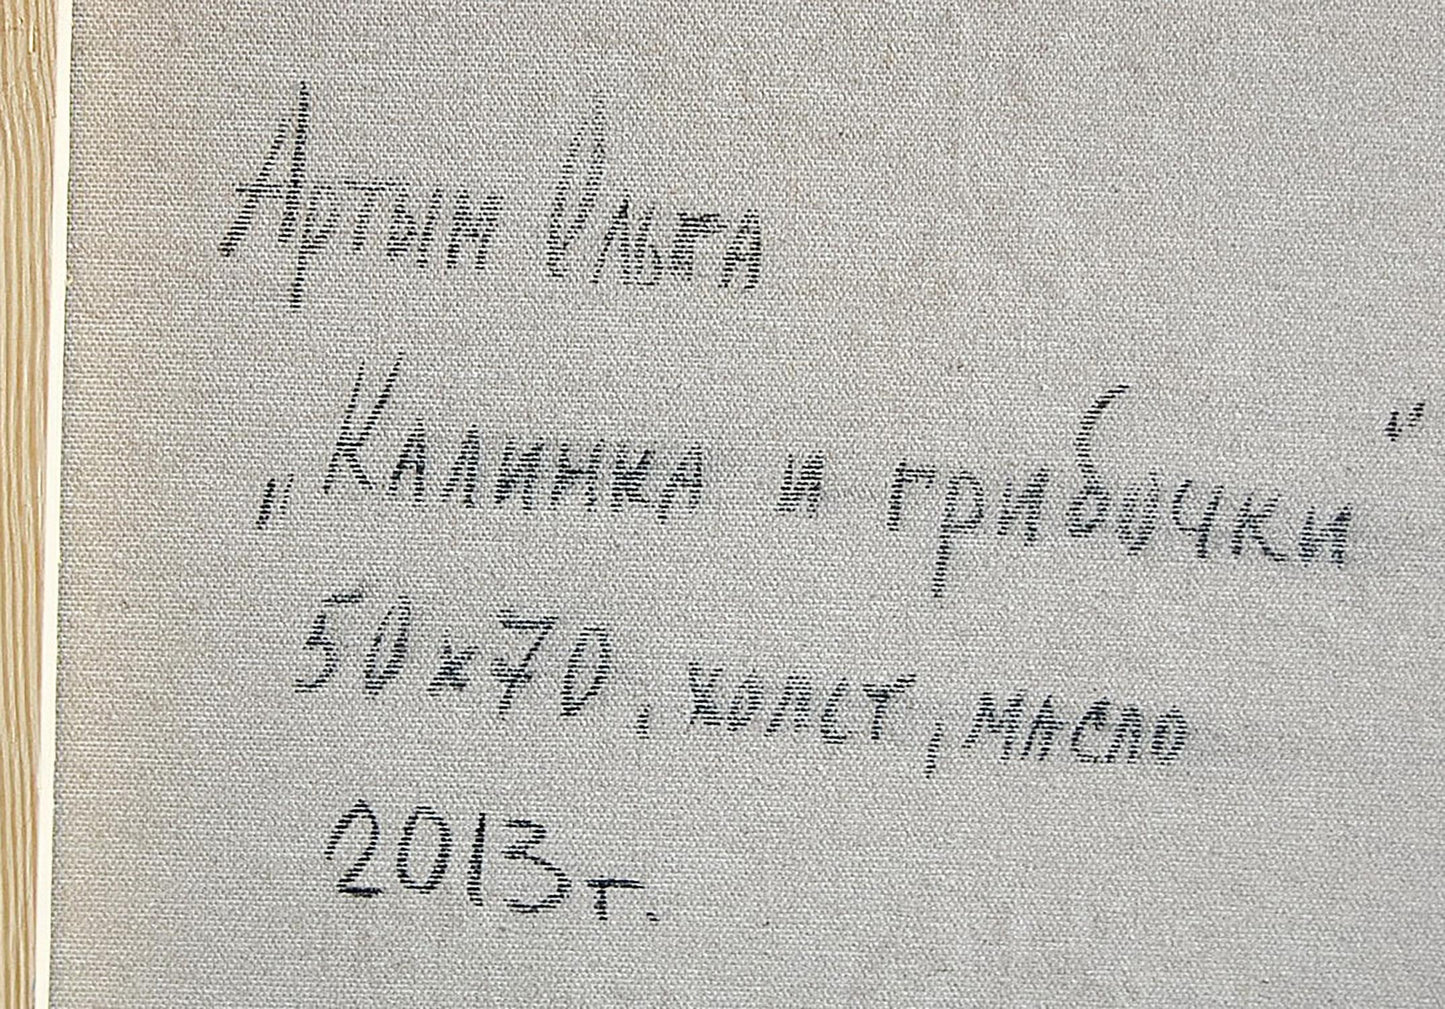 Артым Ольга
„Калинка и грибочки"
50х70, холст, масло
2013г.